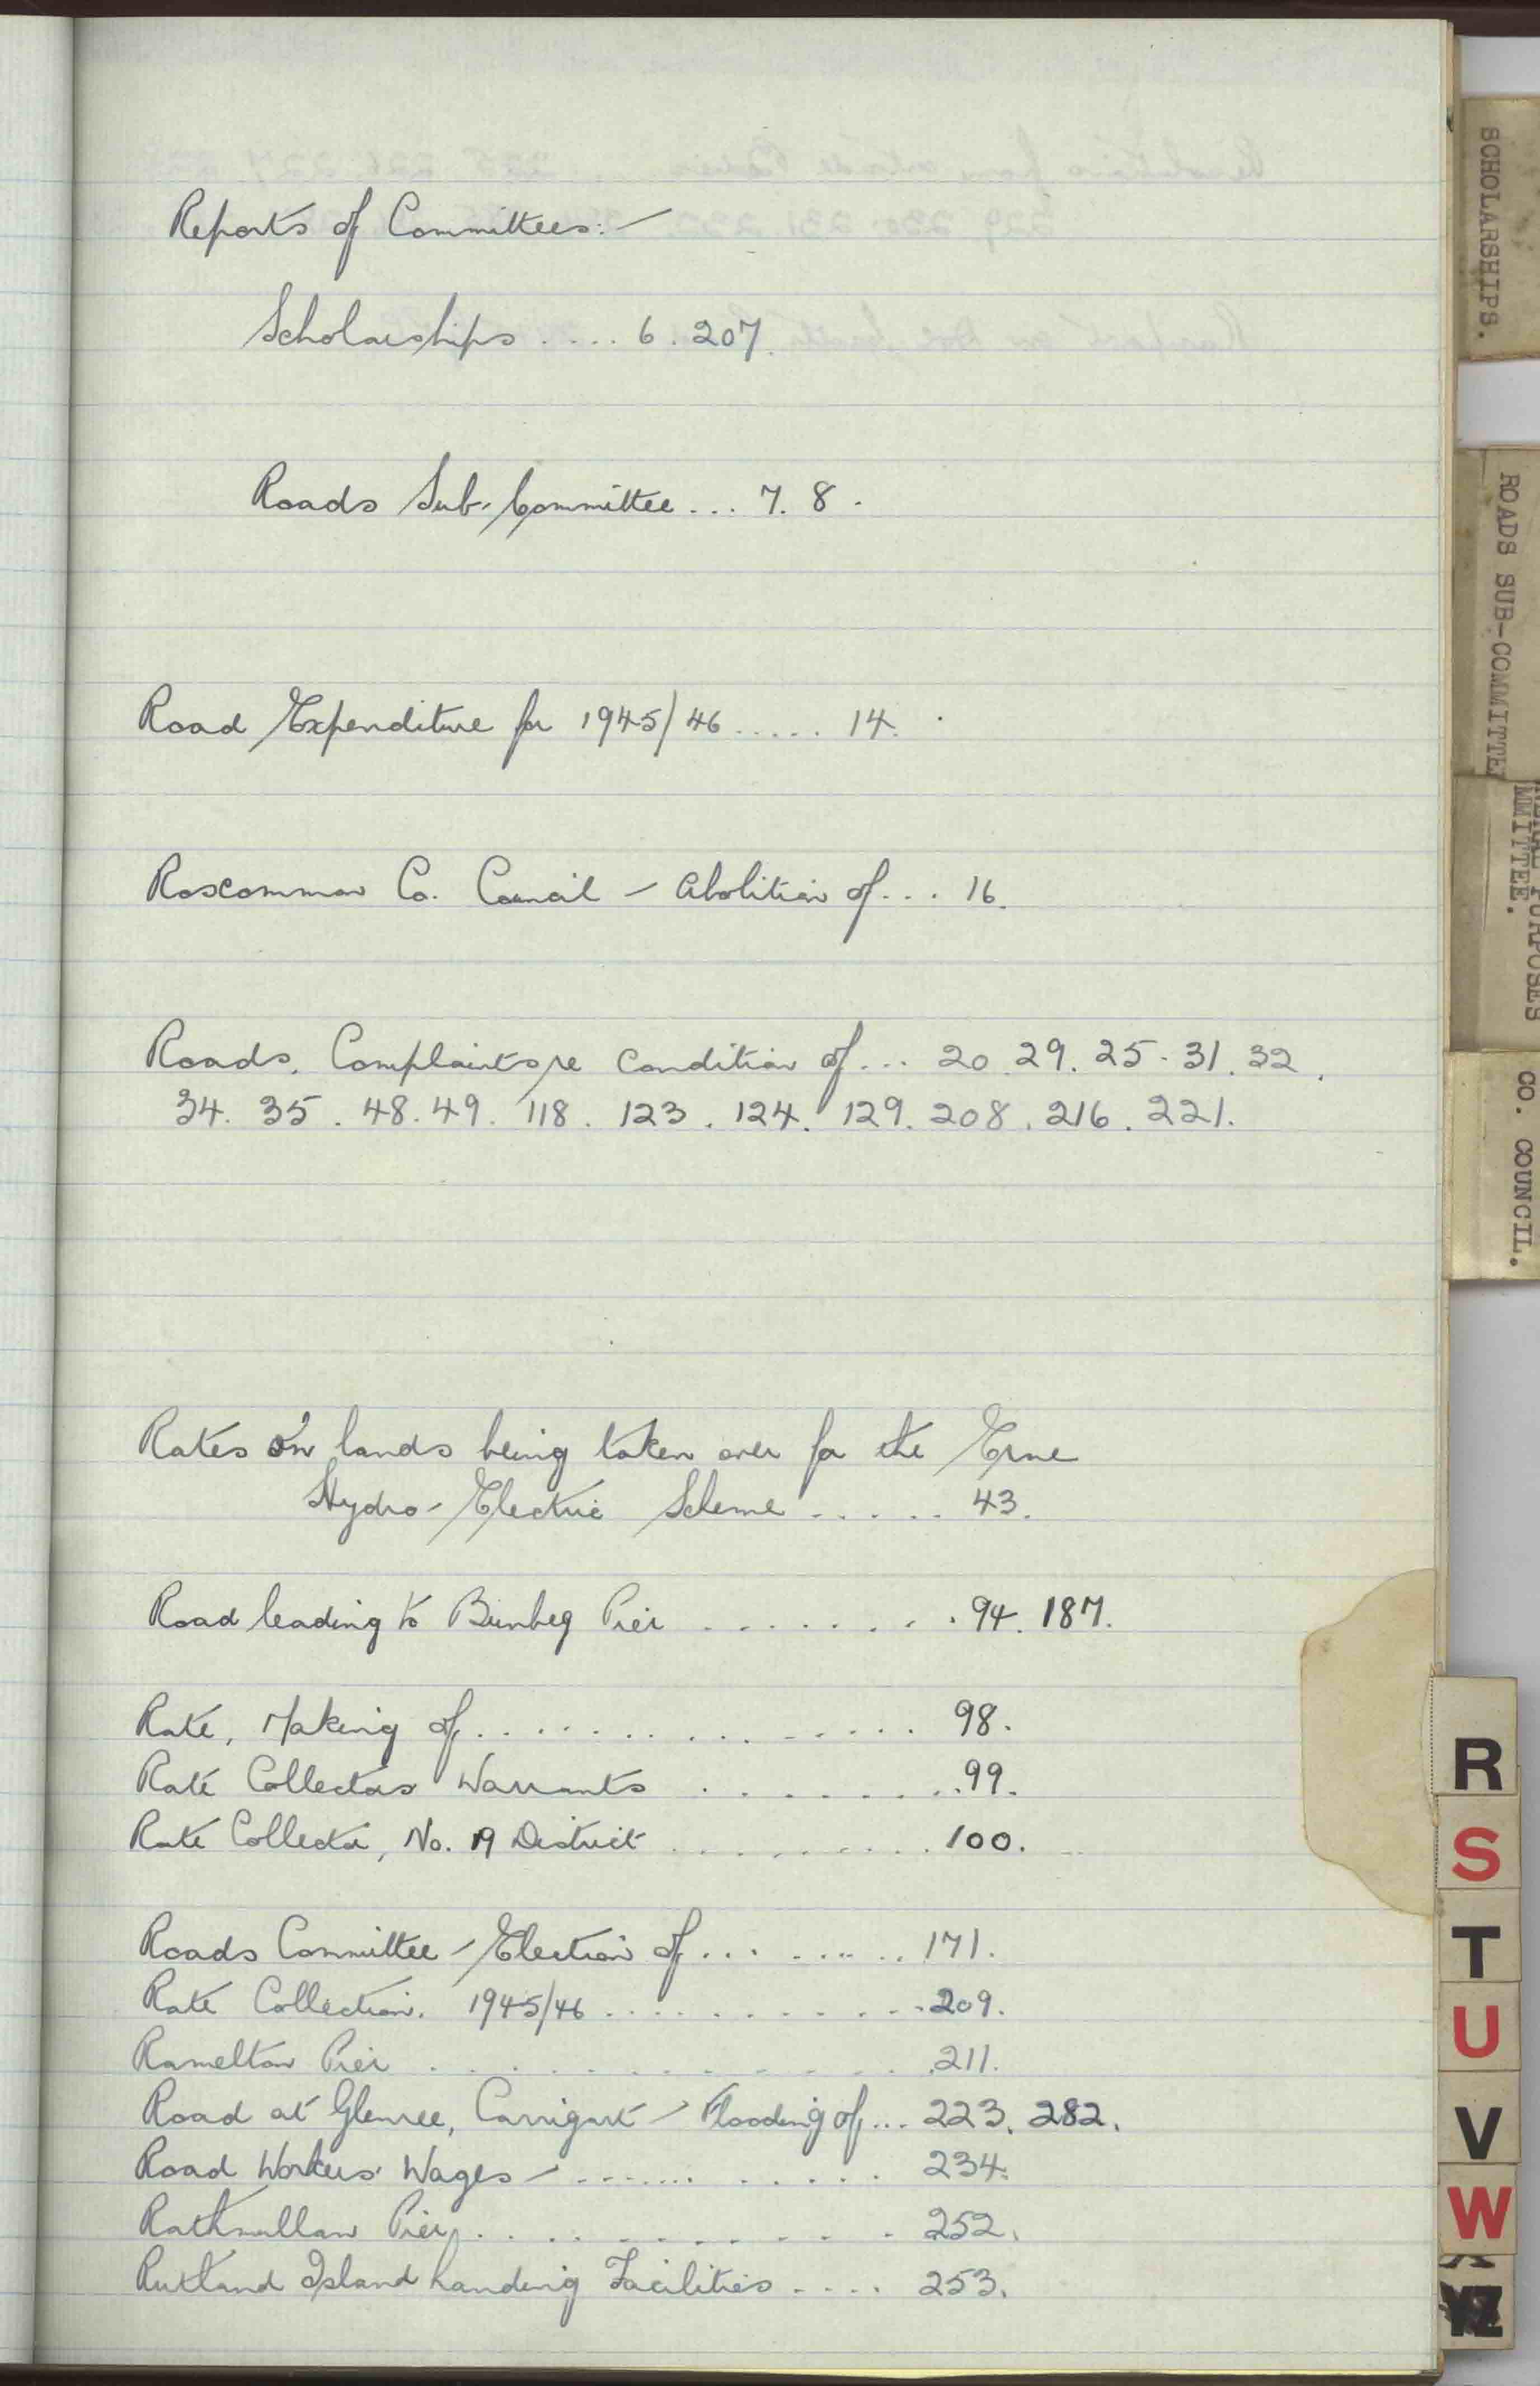 Reports of Committees:-
Scholarships .... 6. 207.
Roads Sub-Committee ... 7. 8.
Road Expenditure for 1945/46 ..... 14.
Roscommon Co. Council - Abolition of ... 16.
Roads, Complaints re condition of ... 20. 29. 25. 31. 32.
34. 35. 48. 49. 118. 123. 124. 129. 208. 216. 221.
Rates on lands being taken over for the Erne
Hydro-Electric Scheme ...... 43.
Road leading to Bunbeg Pier ........ 94. 187.
Rate, Making of .............. 98.
Rate Collectors Warrants ........ 99.
Rate Collector, No. 19 District .......... 100.
Roads Committee - Election of ........ 171.
Rate Collection. 1945/46 ........... 209.
Ramelton Pier ............ 211.
Road at Glenree, Carrigart - Flooding of ... 223. 282.
Road Workers' Wages - ............ 234.
Rathmullan Pier ........... 252.
Rutland Island Landing Facilities ..... 253.
SCHOLARSHIPS.
ROADS SUB-COMMITTE
PURPOSES
MMITTEE.
CO. COUNCIL.
R
S
T
U
V
W
X
YZ